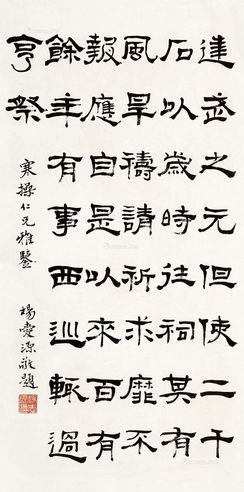 建武之元但使二千
石以歲時往祠其有
風旱禱請祈求靡不
報應自是以來百有
餘年有事西巡輒過
亨祭
寒操仁兄雅鑒 楊愛源敬題